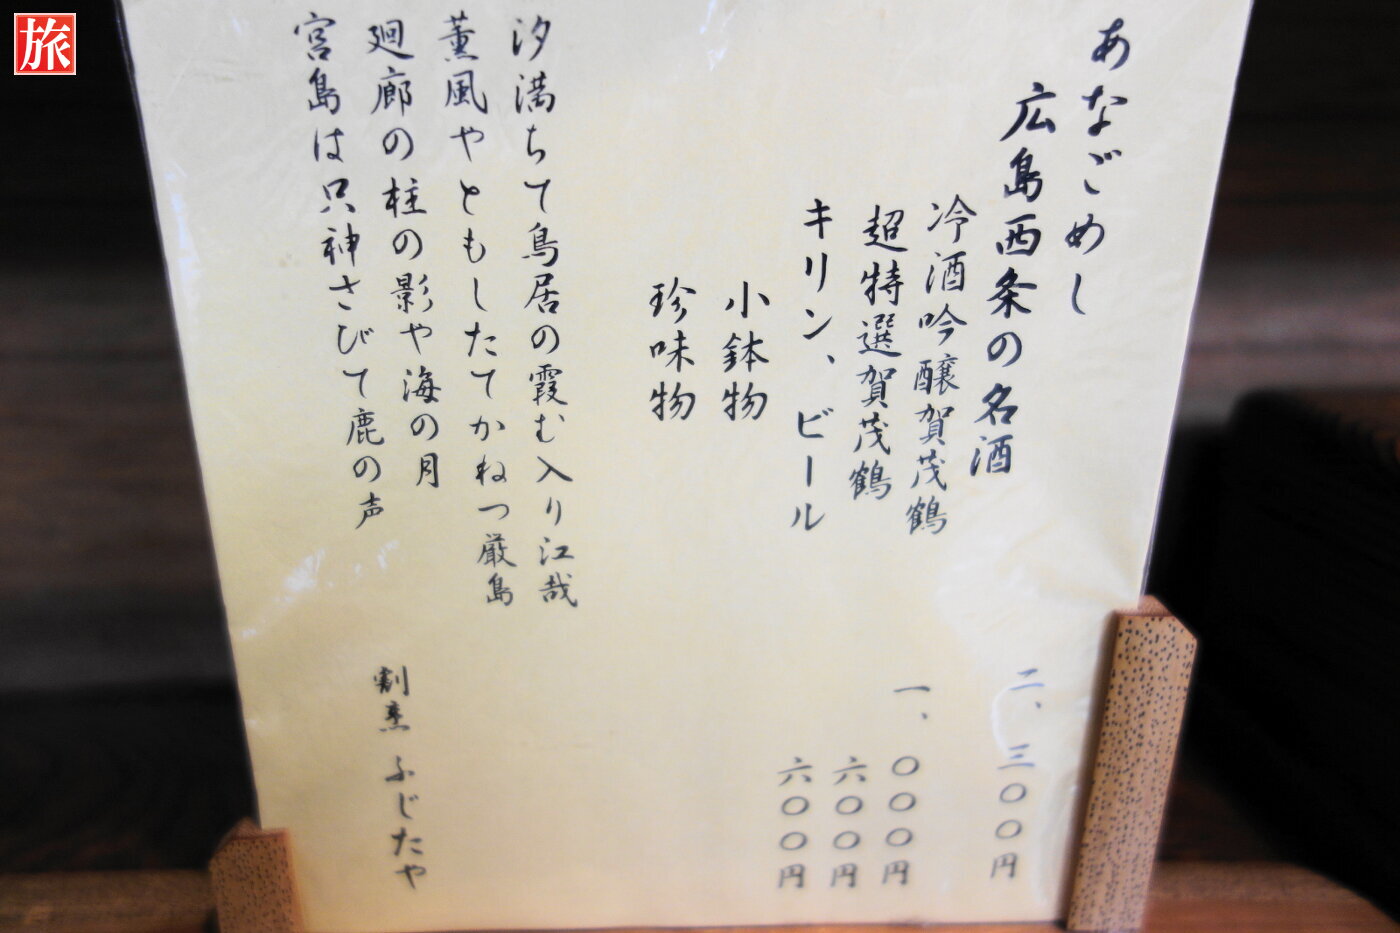 旅
あなごめし 二、三〇〇円
広島西条の名酒
冷酒吟醸賀茂鶴 一、〇〇〇円
超特選賀茂鶴 六〇〇円
キリン、ビール 六〇〇円
小鉢物
珍味物
汐満ちて鳥居の霞む入り江哉
薫風やともしたてかねつ厳島
廻廊の柱の影や海の月
宮島は只神さびて鹿の声
割烹 ふじたや